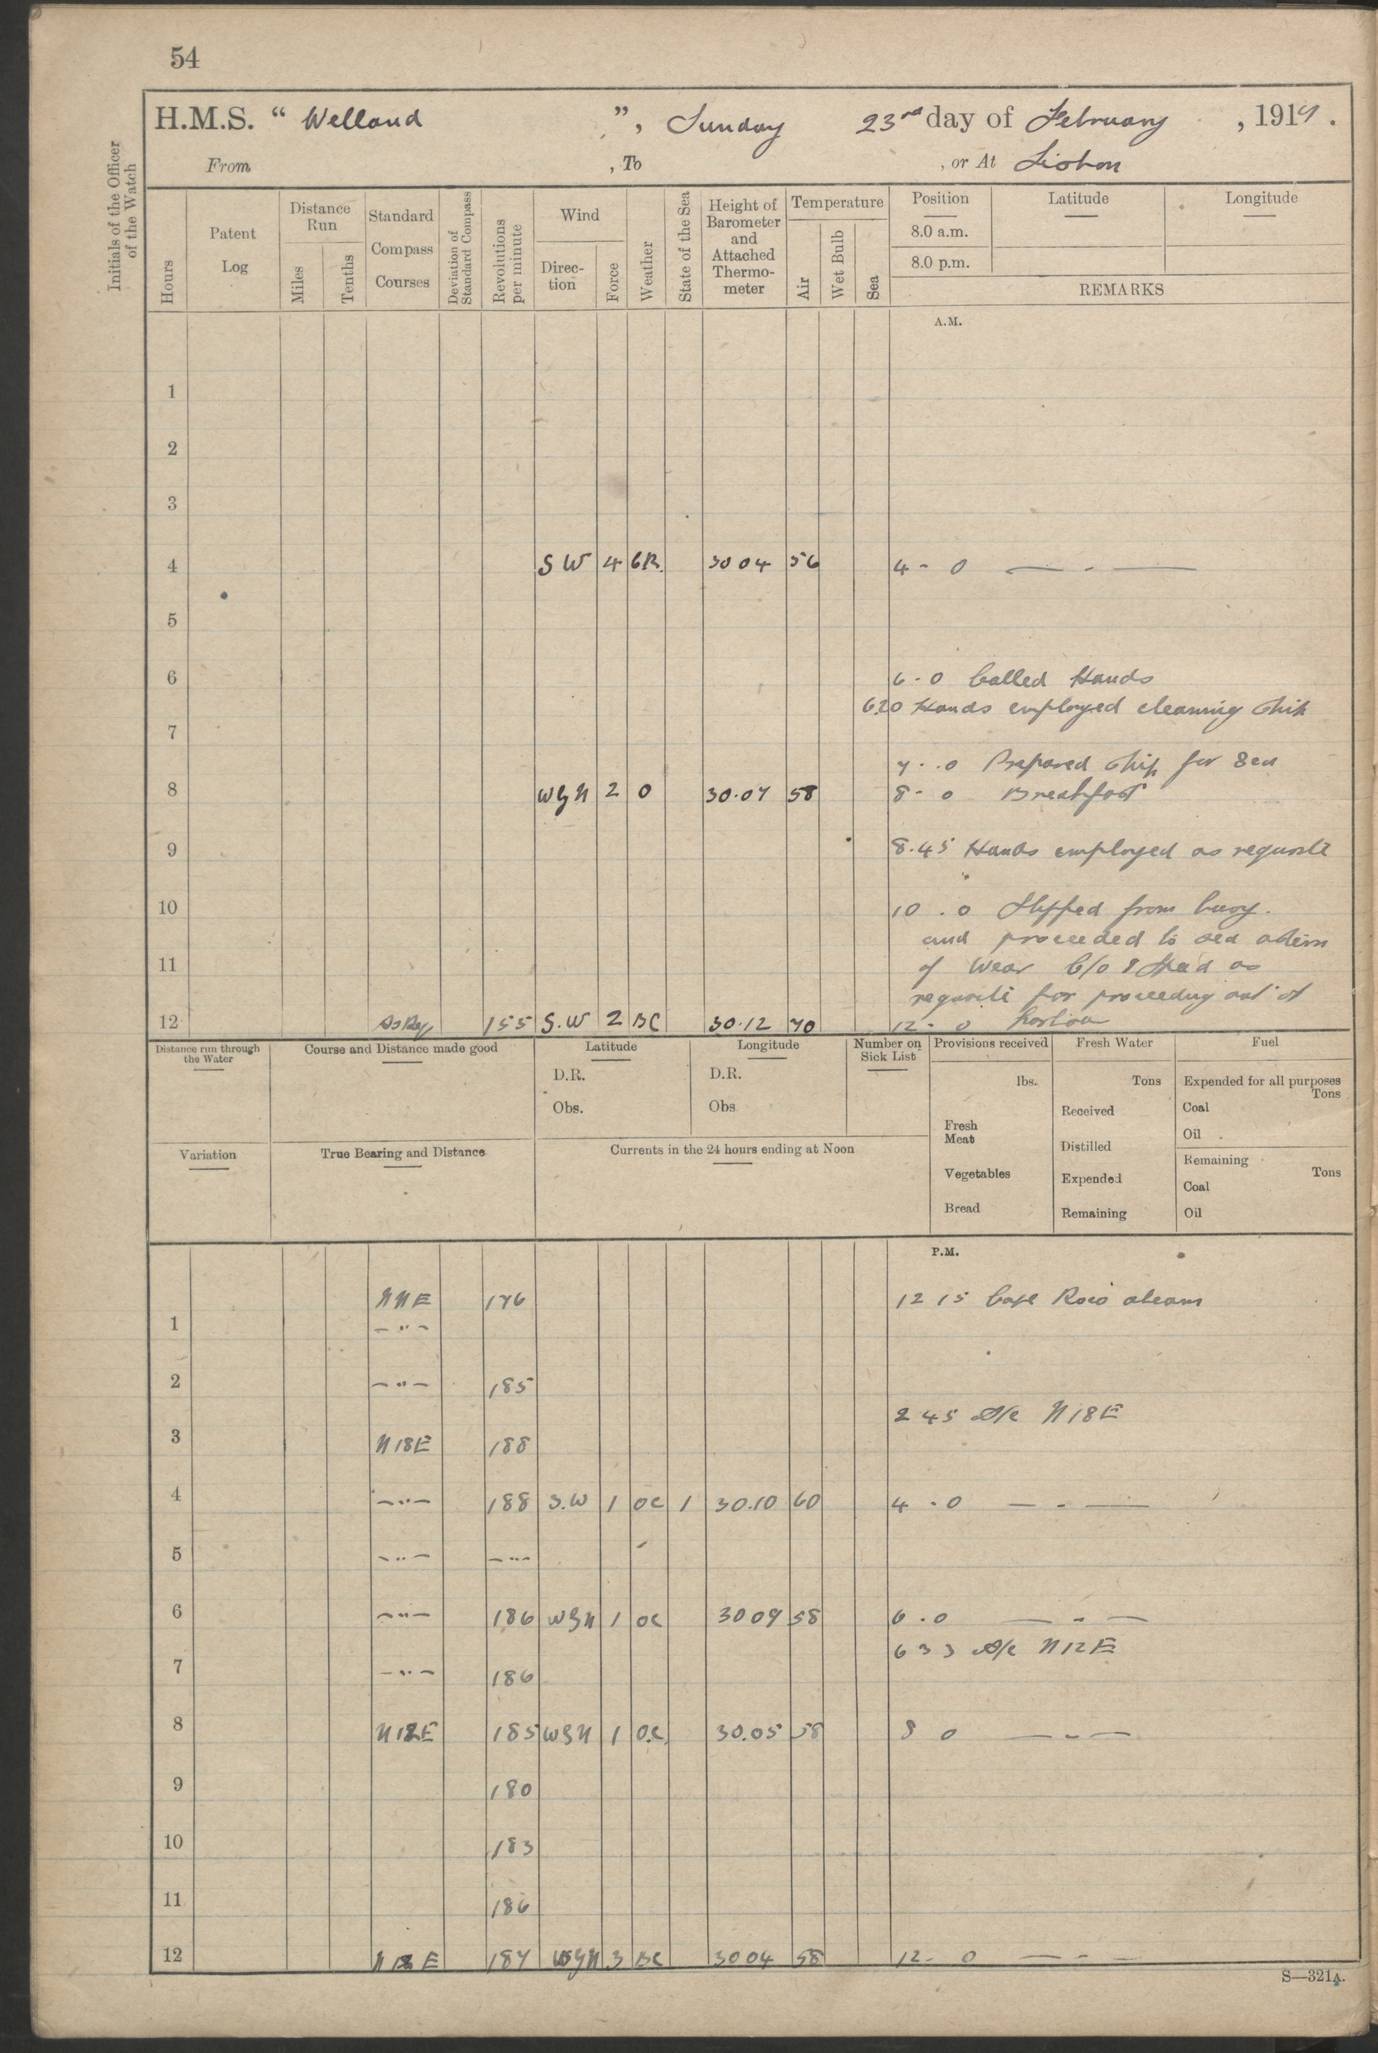 54
H.M.S. “ Welland ”, Sunday 23rd day of February , 1919 .
From , To , or At Lisbon
Initials of the Officer of the Watch
Hours
Patent Log
Distance Run
Miles
Tenths
Standard Compass Courses
Deviation of Standard Compass
Revolutions per minute
Wind
Direc-tion
Force
Weather
State of the Sea
Height of Barometer and Attached Thermo-meter
Temperature
Air
Wet Bulb
Sea
Position
8.0 a.m.
8.0 p.m.
Latitude
Longitude
REMARKS
A.M.
1
2
3
4 SW 4 30 04 56 4 - 0 — - —
5
6 6 - 0 Called Hands
6.20 Hands employed cleaning ship
7
7 . 0 Prepared ship for Sea
8 WBN 2 O 30.07 58 8 - 0 Breakfast
9 8.45 Hands employed as requisite
10 10 . 0 Slipped from buoy.
and proceeded to sea astern
11 of Wear C/o & Speed as
requisite for proceeding out of
12 As Req 155 S.W 2 BC 30.12 70 12 - 0
Distance run through the Water
Course and Distance made good
Latitude
D.R.
Obs.
Longitude
D.R.
Obs
Number on Sick List
Provisions received
lbs.
Fresh Meat
Vegetables
Bread
Fresh Water
Tons
Received
Distilled
Expended
Remaining
Fuel
Expended for all purposes
Tons
Coal
Oil
Remaining
Tons
Coal
Oil
Variation
True Bearing and Distance
Currents in the 24 hours ending at Noon
P.M.
NNE 176 12 15 Cape Roco abeam
1 — " —
2 — " — 185
2 45 A/c N18E
3 N18E 188
4 — " — 188 S.W 1 OC 1 30.10 60 4 . 0 — - —
5 — " — — " —
6 — " — 186 WBN 1 OC 30 09 58 6 . 0 — " —
6 33 A/c N12E
7 — " — 186
8 N12E 185 WBN 1 O.C. 30.05 58 8 0 — - —
9 180
10 183
11 186
12 N12E 187 WBN 3 BC 30 04 58 12 - 0 — - —
S—321A.